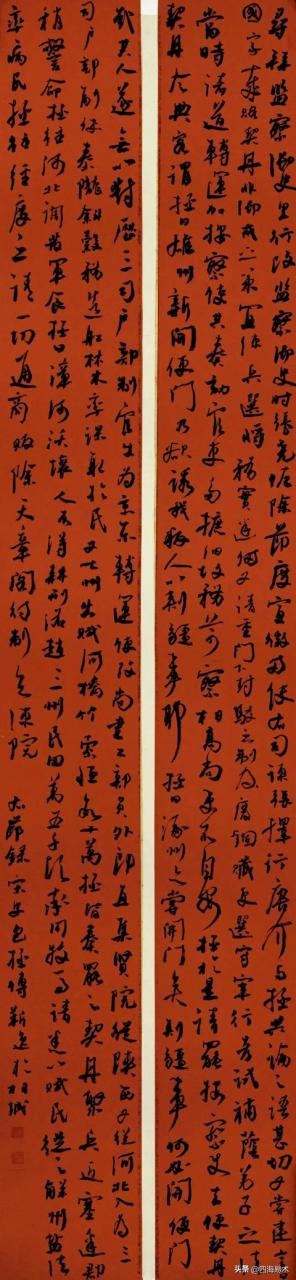 尋拜監察御史里行改監察御史時張堯佐除節度宣徽兩使右司諫張擇行唐介與拯共論之語甚切又嘗建言
國家歲賂契丹非御戎之策宜練兵選將務實邊備又請重門下封駁之制及廢錮贓吏選守宰行考試補蔭弟子之法
當時諸道轉運加按察使其奏劾官吏多摭細故務苛察相高尚吏不自安拯於是請罷按察使去使契丹
契丹令典客謂拯曰雄州新開便門乃欲誘我叛人以刺疆事耶拯曰涿州亦嘗開門矣刺疆事何必開便門
哉其人遂無以對歷三司戶部判官出為京東轉運使改尚書工部員外郎直集賢院徙陝西又徙河北入為三
司戶部副使秦隴斜谷務造船材木率課取於民又七州出賦河橋竹索恒數十萬拯皆奏罷之契丹聚兵近塞邊郡
稍警命拯往河北調發軍食拯曰漳河沃壤人不得耕邢洺趙三州民田萬五千頃率用牧馬請悉以賦民從之解州鹽法
率病民拯往經度之請一切通商販除天章閣待制知諫院 右節錄宋史包拯傳 靳於相城
头条 @四海易术